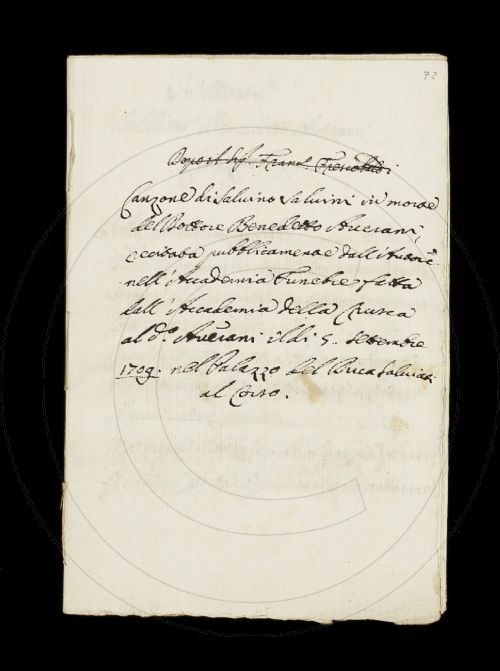 72
Canzone di Salvino Salvini in morte
del Dottore Benedetto Averani,
recitata pubblicamente dall'Autore
nell'Accademia Funebre fatta
dall'Accademia della Crusca
al do. Averani il dì 5. settembre
1709. nel Palazzo del Duca Salviati
al Corso.